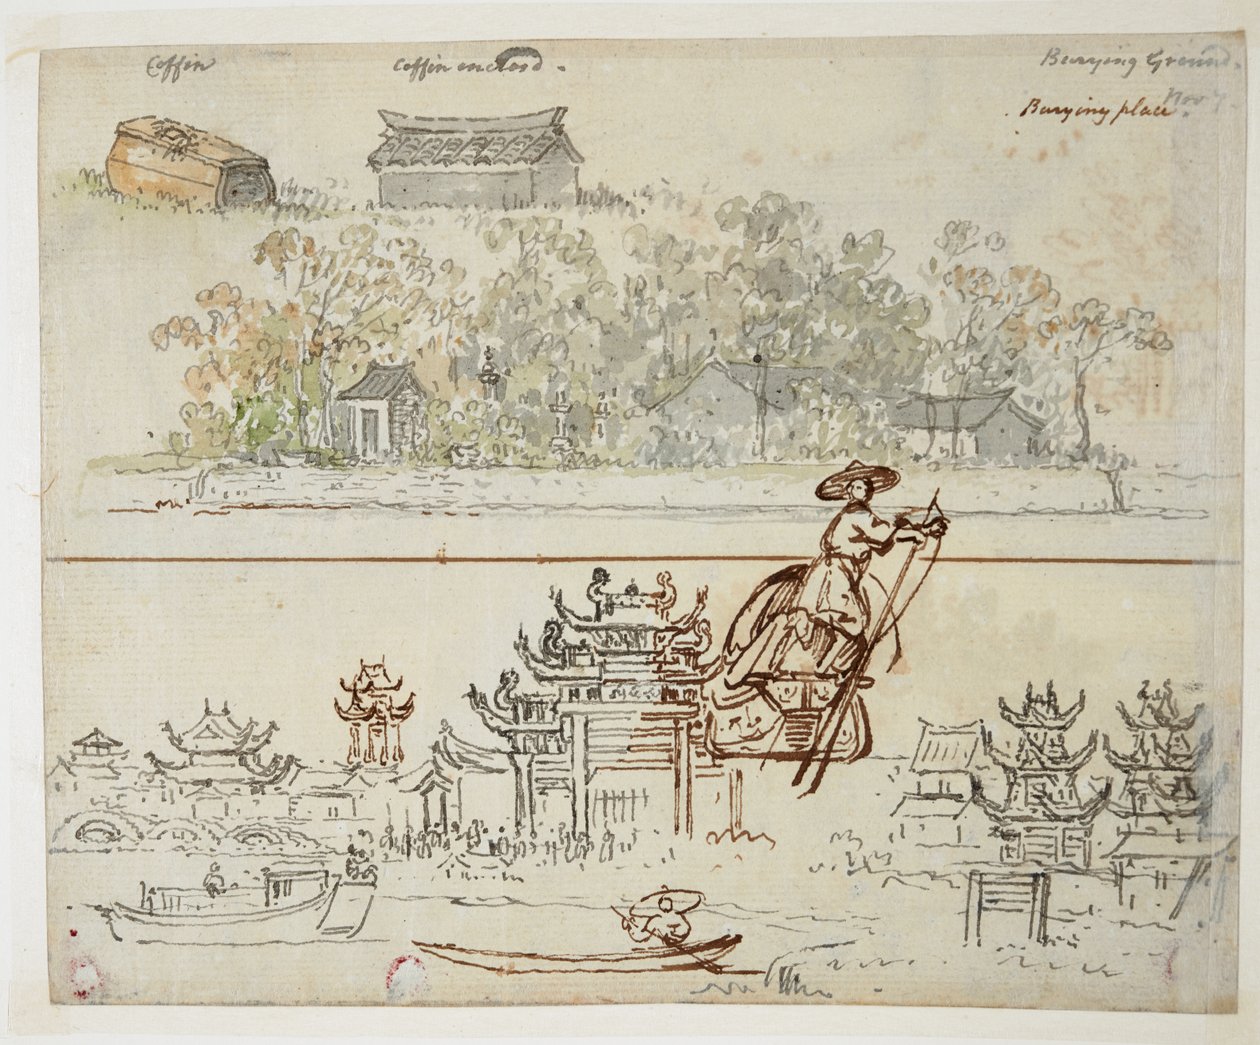 Coffin
Coffin enclosd.
Burying Ground.
Nov 7.
Burying place.